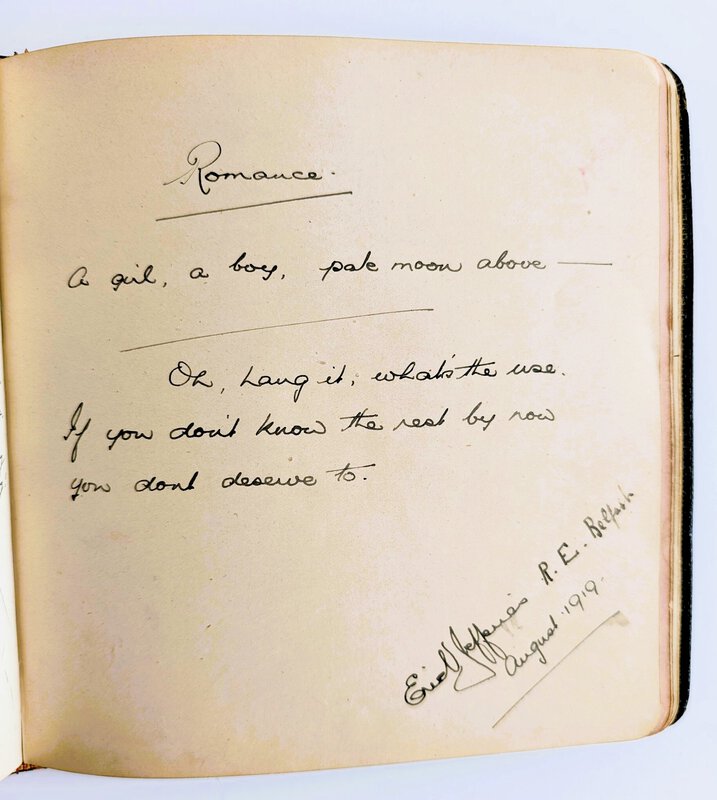 Romance.
A girl, a boy, pale moon above —
Oh, hang it, what's the use.
If you don't know the rest by now
you dont deserve to.
Eric Jefferies R. E. Belfast.
August 1919.